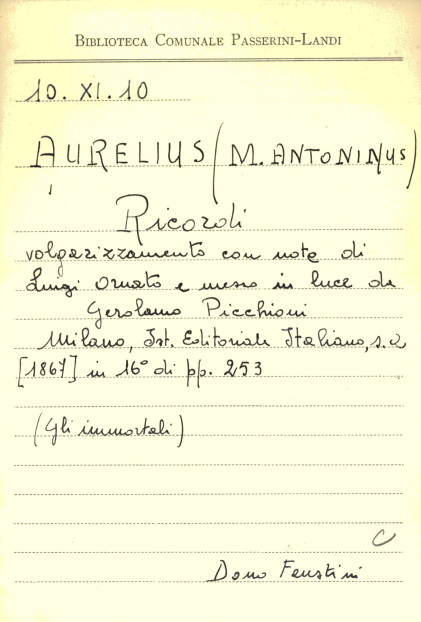 BIBLIOTECA COMUNALE PASSERINI-LANDI
10. XI. 10
AURELIUS (M. ANTONINUS)
Ricordi
volgarizzamento con note di
Luigi Ornato e messo in luce da
Gerolamo Picchioni
Milano, Ist. Editoriale Italiano, s.a
[1867] in 16° di pp. 253
(Gli immortali)
C
Dono Faustini